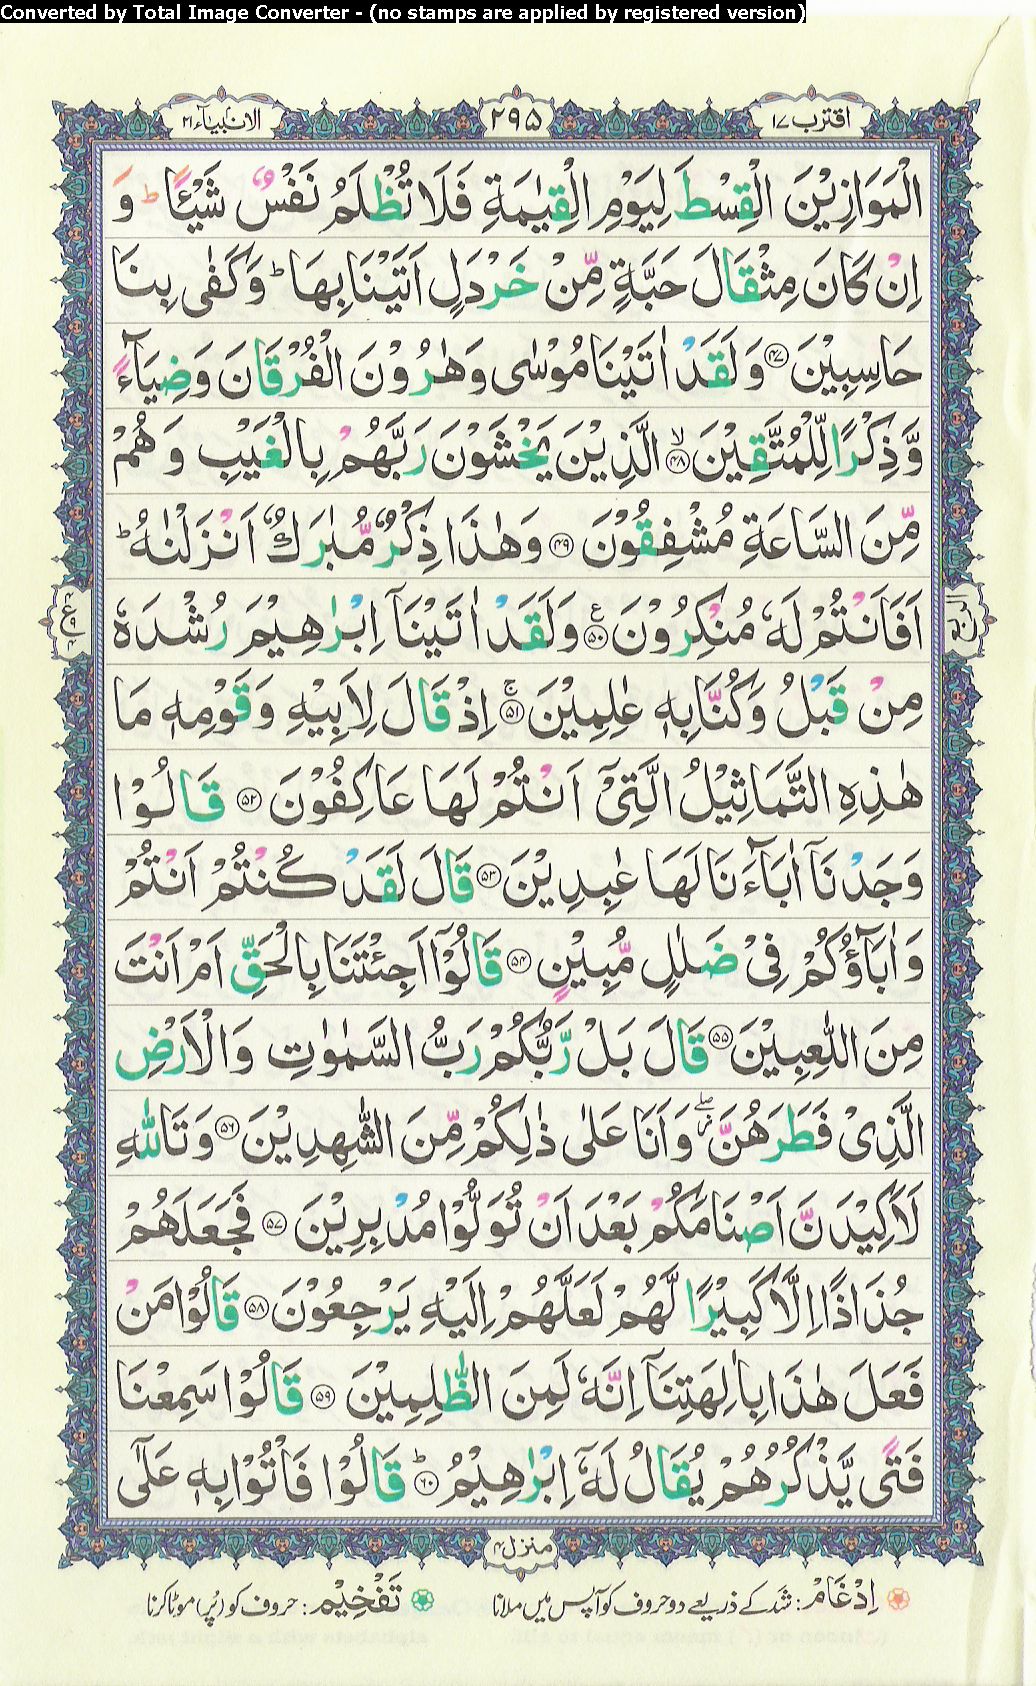 Converted by Total Image Converter - (no stamps are applied by registered version)
اقترب ١٧
٢٩٥
الانبیاء ٢١
الْمَوَازِیْنَ الْقِسْطَ لِیَوْمِ الْقِیٰمَةِ فَلَا تُظْلَمُ نَفْسٌ شَیْـًٔا ؕ وَ
اِنْ كَانَ مِثْقَالَ حَبَّةٍ مِّنْ خَرْدَلٍ اَتَیْنَا بِهَا ؕ وَكَفٰی بِنَا
حَاسِبِیْنَ ﴿۴۷﴾ وَلَقَدْ اٰتَیْنَا مُوْسٰی وَهٰرُوْنَ الْفُرْقَانَ وَضِیَآءً
وَّذِكْرًا لِّلْمُتَّقِیْنَ ﴿۴۸﴾ۙ الَّذِیْنَ یَخْشَوْنَ رَبَّهُمْ بِالْغَیْبِ وَهُمْ
مِّنَ السَّاعَةِ مُشْفِقُوْنَ ﴿۴۹﴾ وَهٰذَا ذِكْرٌ مُّبٰرَكٌ اَنْزَلْنٰهُ ؕ
اَفَاَنْتُمْ لَهٗ مُنْكِرُوْنَ ﴿۵۰﴾ۧ وَلَقَدْ اٰتَیْنَاۤ اِبْرٰهِیْمَ رُشْدَهٗ
مِنْ قَبْلُ وَكُنَّا بِهٖ عٰلِمِیْنَ ﴿۵۱﴾ۚ اِذْ قَالَ لِاَبِیْهِ وَقَوْمِهٖ مَا
هٰذِهِ التَّمَاثِیْلُ الَّتِیْۤ اَنْتُمْ لَهَا عَاكِفُوْنَ ﴿۵۲﴾ قَالُوْا
وَجَدْنَاۤ اٰبَآءَنَا لَهَا عٰبِدِیْنَ ﴿۵۳﴾ قَالَ لَقَدْ كُنْتُمْ اَنْتُمْ
وَاٰبَآؤُكُمْ فِیْ ضَلٰلٍ مُّبِیْنٍ ﴿۵۴﴾ قَالُوْۤا اَجِئْتَنَا بِالْحَقِّ اَمْ اَنْتَ
مِنَ اللّٰعِبِیْنَ ﴿۵۵﴾ قَالَ بَلْ رَّبُّكُمْ رَبُّ السَّمٰوٰتِ وَالْاَرْضِ
الَّذِیْ فَطَرَهُنَّ ۖؗ وَاَنَا عَلٰی ذٰلِكُمْ مِّنَ الشّٰهِدِیْنَ ﴿۵۶﴾ وَتَاللّٰهِ
لَاَكِیْدَنَّ اَصْنَامَكُمْ بَعْدَ اَنْ تُوَلُّوْا مُدْبِرِیْنَ ﴿۵۷﴾ فَجَعَلَهُمْ
جُذَاذًا اِلَّا كَبِیْرًا لَّهُمْ لَعَلَّهُمْ اِلَیْهِ یَرْجِعُوْنَ ﴿۵۸﴾ قَالُوْا مَنْ
فَعَلَ هٰذَا بِاٰلِهَتِنَاۤ اِنَّهٗ لَمِنَ الظّٰلِمِیْنَ ﴿۵۹﴾ قَالُوْا سَمِعْنَا
فَتًی یَّذْكُرُهُمْ یُقَالُ لَهٗۤ اِبْرٰهِیْمُ ﴿۶۰﴾ؕ قَالُوْا فَاْتُوْا بِهٖ عَلٰۤی
منزل ۴
اِدْغَامْ: شد کے ذریعے دو حروف کو آپس میں ملانا تَفْخِیْم: حروف کو (پُر) موٹا کرنا